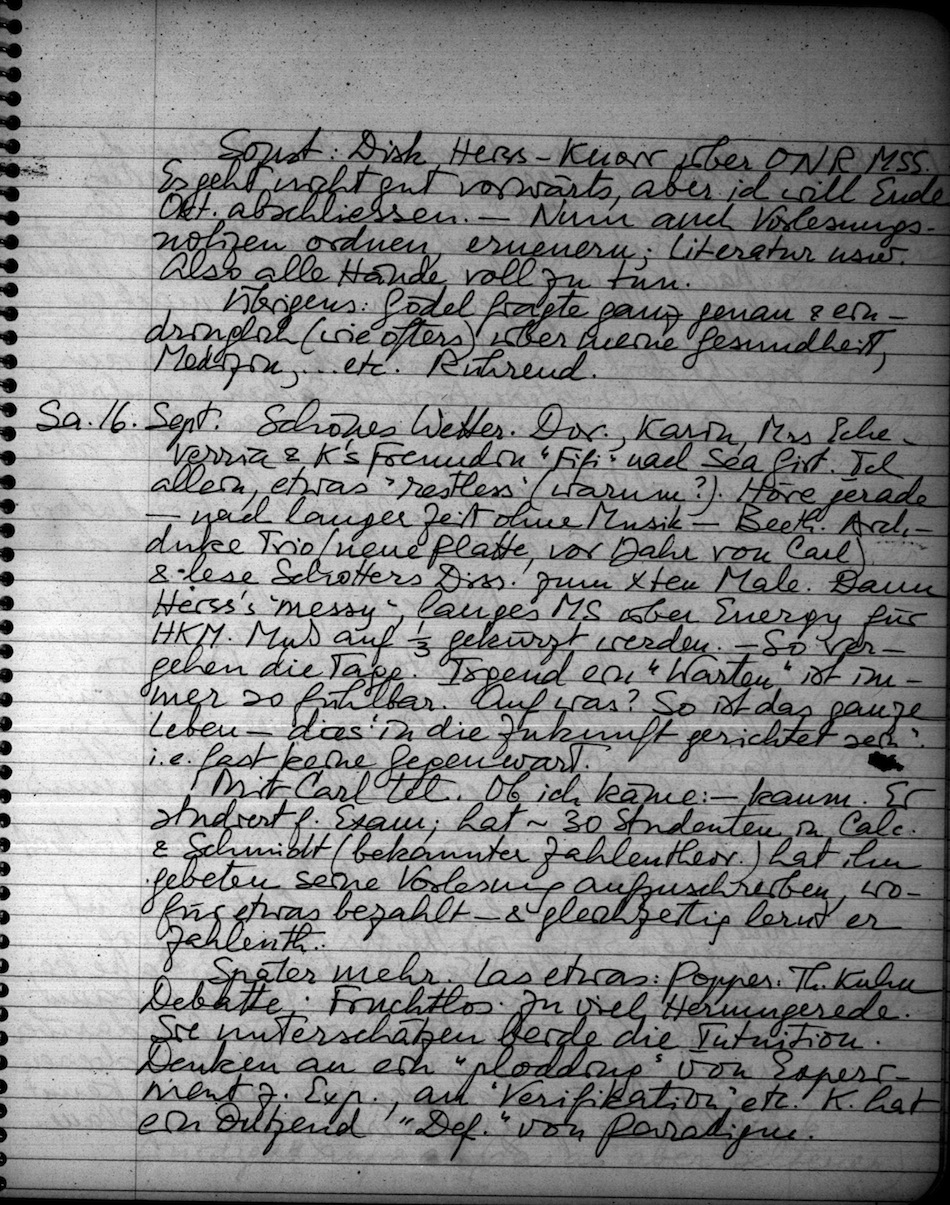 Sonst: Disk. Heiss-Knorr über ONR MSS.
Es geht nicht gut vorwärts, aber ich will Ende
Okt. abschliessen. — Nun auch Vorlesungs-
notizen ordnen, erneuern; Literatur usw.
Also alle Hände voll zu tun.
Übrigens: Gödel fragte ganz genau & ein-
dringlich (wie öfters) über meine Gesundheit,
Medizin, ... etc. Rührend.
Sa. 16. Sept. Schönes Wetter. Dor., Karin, Mrs Eche-
verria & K's Freundin "Fifi" nach Sea Girt. Ich
allein, etwas 'restless' (warum?). Höre gerade
— nach langer Zeit ohne Musik — Beeth. Arch-
duke Trio (neue Platte, vor Jahr von Carl)
& lese Schotters Diss. zum xten Male. Dann
Heiss's "messy", langes MS über Energy für
HKM. Muß auf ⅓ gekürzt werden. — So ver-
gehen die Tage. Irgend ein "Warten" ist im-
mer so fühlbar. Auf was? So ist das ganze
Leben — dies 'in die Zukunft gerichtet sein'.
i.e. fast keine Gegenwart.
Mit Carl tel. Ob ich käme: — kaum. Er
studiert f. Exam; hat ~ 30 Studenten in Calc.
& Schmidt (bekannter Zahlentheor.) hat ihn
gebeten seine Vorlesung aufzuschreiben, wo-
für etwas bezahlt — & gleichzeitig lernt er
Zahlenth.
Später mehr. Las etwas: Popper. Th. Kuhn
Debatte. Fruchtlos. Zu viel Herumgerede.
Sie unterschätzen beide die Intuition.
Denken an ein "plodding" von Experi-
ment z. Exp., an "Verifikation", etc. K. hat
ein Dutzend "Def." von Paradigm.